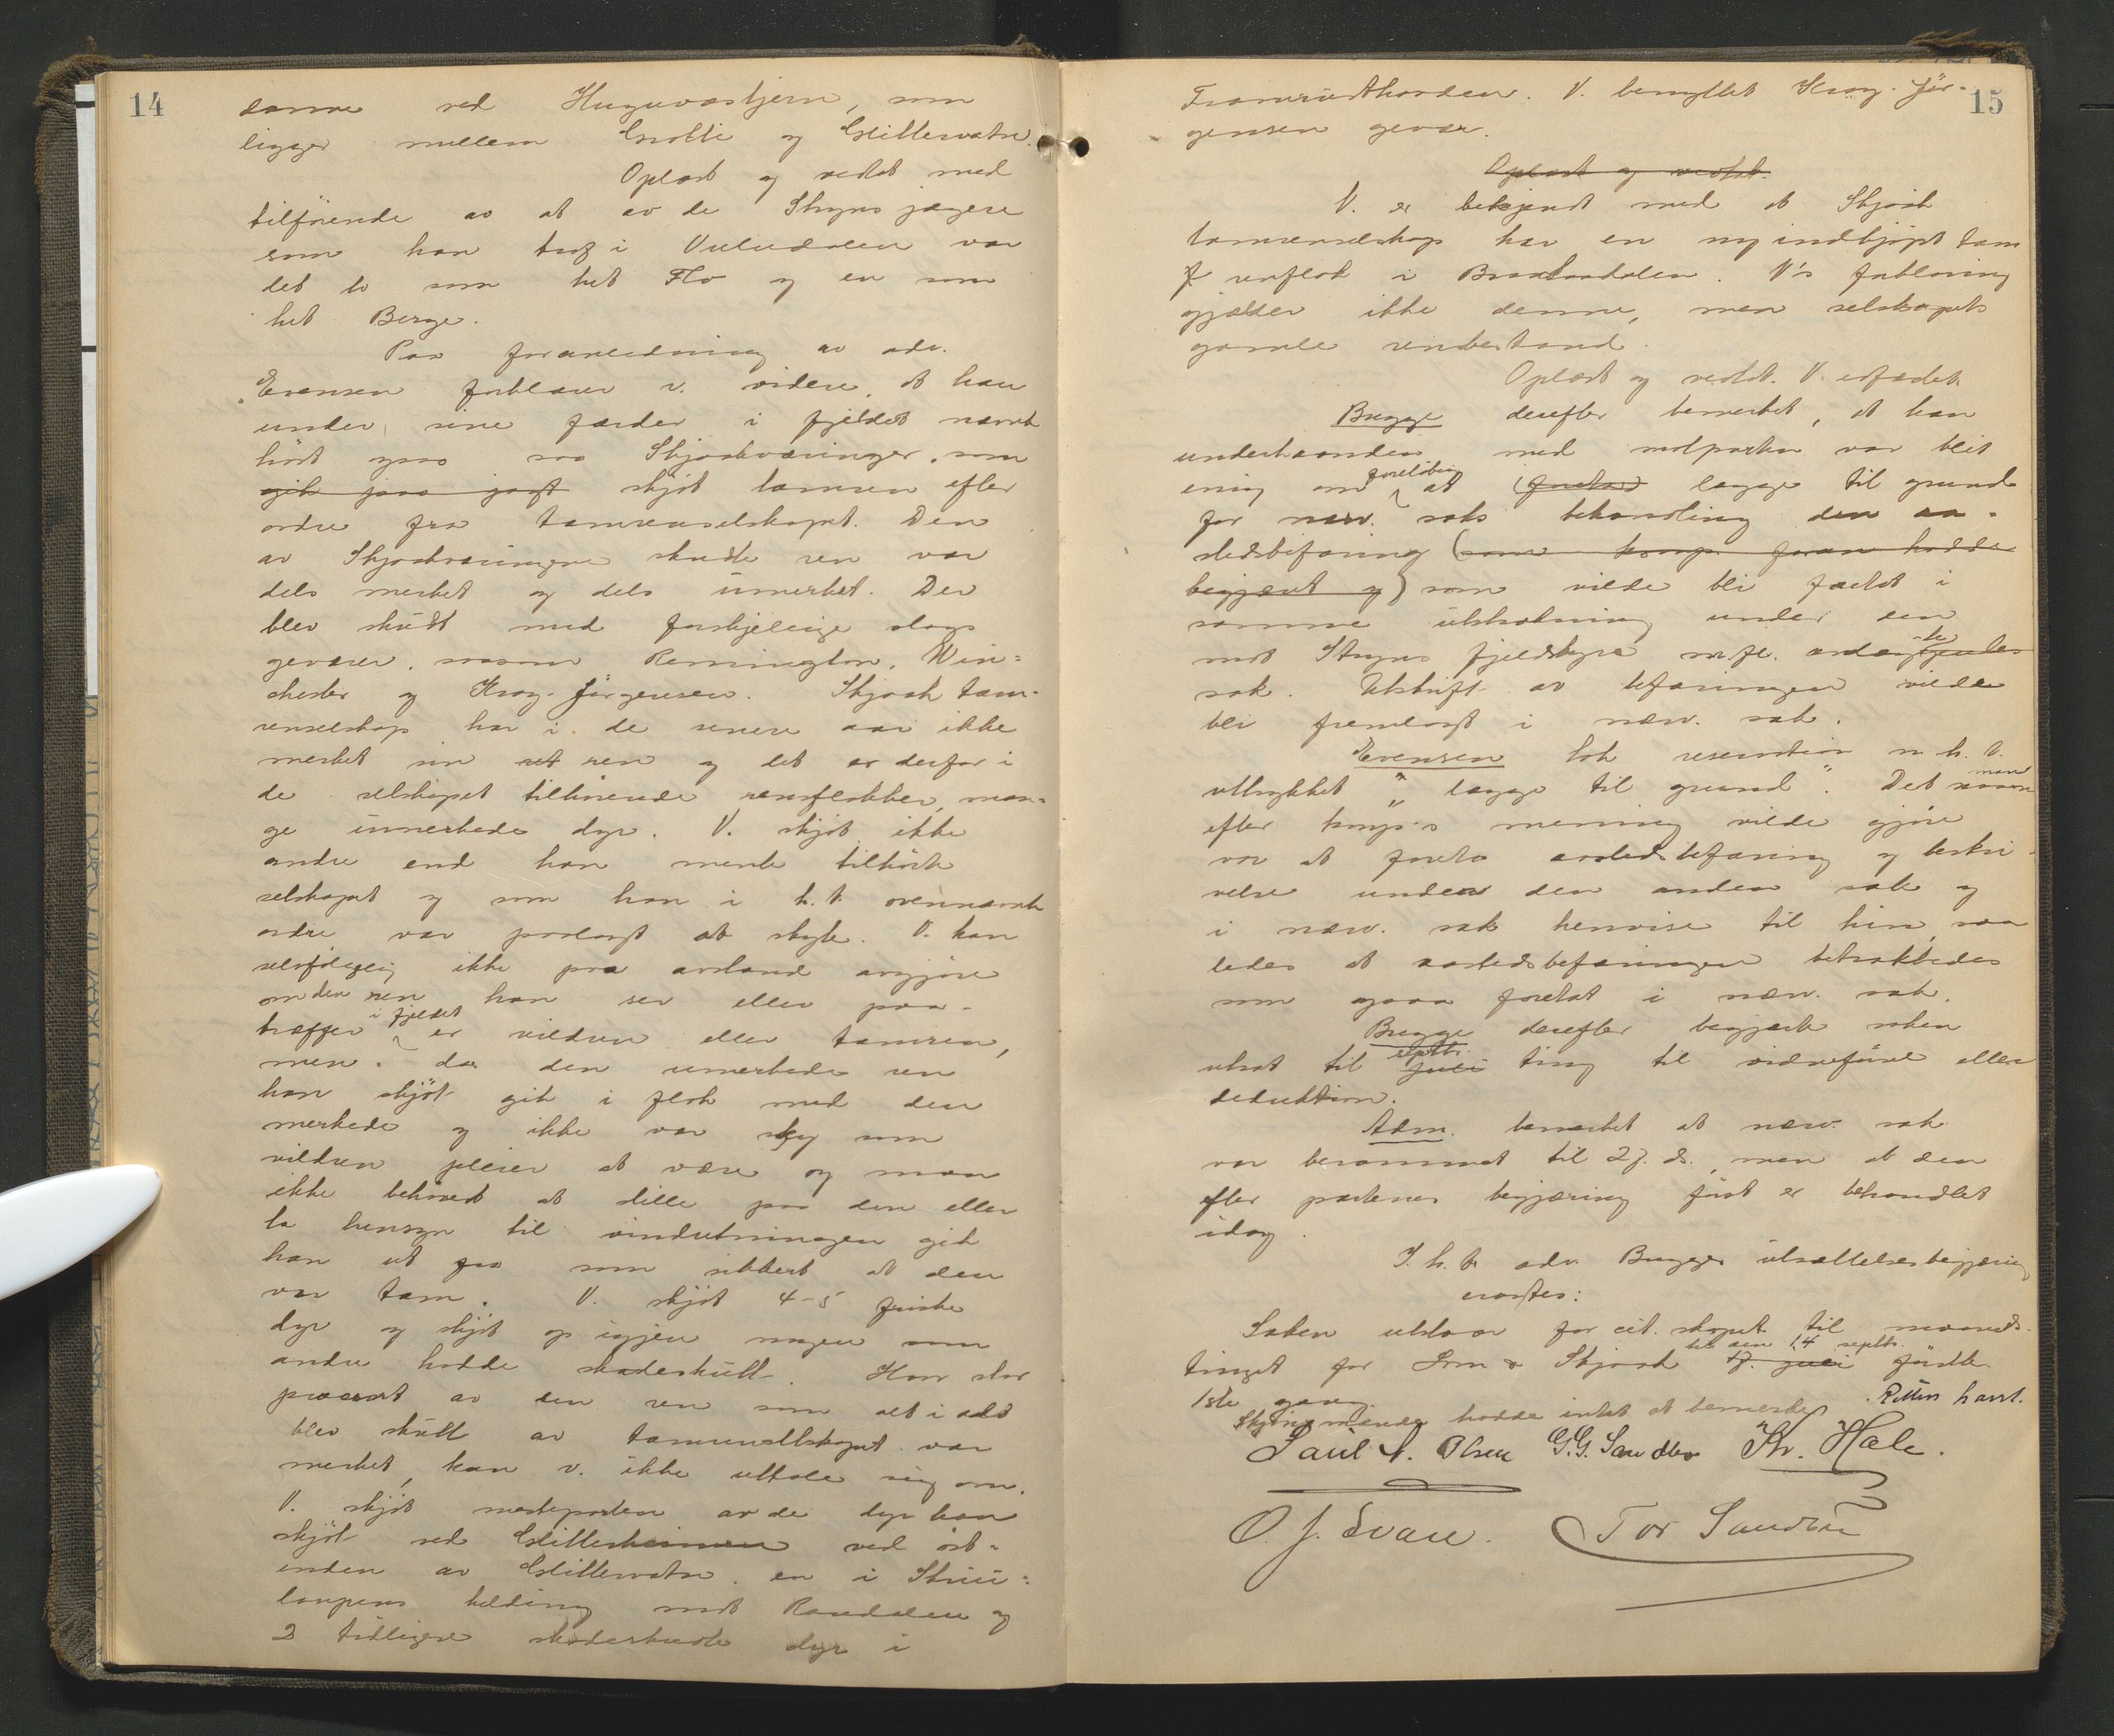 14
samme ved Huguvastjern, som
ligger mellem Grotli og Glittervatn.
Oplæst og vedtat med
tilføiende av at av de Stryns jægere
som han traf i Vuludalen var
det to som het Flo og en som
het Berge.
Paa foranledning av adv.
Evensen forklarer v. videre, at han
under sine færder i fjeldet nævnt
høst ogsaa saa Skjaakværinger, som
gik paa jagt skjøt tamren efter
ordre fra tamrenselskapet. Den
av Skjaakværingene skudte ren var
dels merket og dels umerket. Der
blev skudt med forskjellige slags
geværer, saasom Remington, Win-
chester og Krag-Jørgensen. Skjaak tam-
renselskap har i de senere aar ikke
merket sin ret ren og det er derfor i
de selskapet tilhørende renflokker, man-
ge umerkede dyr. V. skjøt ikke
andre end han mente tilhørte
selskapet og som han i h.t. ovennævnte
ordre var paalagt at skyte. V. kan
selvfølgelig ikke paa avstand avgjøre
om den ren han ser eller paa-
træffer i fjeldet er vildren eller tamren,
men da den umerkede ren
han skjøt gik i flok med den
merkede og ikke var sky som
vildren pleier at være og man
ikke behøvet at stille paa den eller
ta hensyn til vindretningen gik
han ut fra som sikkert at den
var tam. V. skjøt 4-5 friske
dyr og skjøt op igjen nogen som
andre hadde skadeskutt. Hvor stor
procent av den ren som alt i alt
blev skutt av tamrenselskapet var
merket, kan v. ikke uttale sig om.
V. skjøt mesteparten av de dyr han
skjøt ved Glitterheimen ved øst-
enden av Glittervatn, en i
helding mot Raudalen og
2 tidligere skadeskudte dyr i
15
Framrusthovden. V. benyttet Krag-Jør-
gensen gevær.
Oplæst og vedtat.
V. er bekjendt med at Skjaak
tamrenselskap har en ny indkjøpt tam
renflok i Braatadalen. V's forklaring
gjælder ikke denne, men selskapets
gamle renbestand.
Oplæst og vedtat. V. edfæstet.
Bugge derefter bemerket, at han
underhaanden med motparten var blit
enig om foreløbig at (foreta) lægge til grund
for nærv. saks behandling den aa-
stedsbefaring (som komp. foran hadde
begjært og) som vilde bli foretat i
samme utstrækning under den
mot Stryns fjeldstyre m.fl.
sak. Utskrift av befaringen vilde
bli fremlagt i nærv. sak.
Evensen tok reservation m.h.t.
uttrykket "lægge til grund". Det man
efter komp.s mening vilde gjøre
var at foreta aastedsbefaring og beskri-
velse under den anden sak og
i nærv. sak henvise til hin, saa
ledes at aastedsbefaringen betraktedes
som ogsaa foretat i nærv. sak.
Bugge derefter begjærte saken
utsat til juli septbr. ting til vidneførsel eller
deduktion.
Adm. bemerket at nærv. sak
var berammet til 27. ds., men at den
efter partenes begjæring først er behandlet
idag.
I h.t. adv. Bugges utsættelsesbegjæring
avsagdes:
Saken utstaar for cit. skyld til maaneds-
tinget for Lom & Skjaak 17. juli til den 14 septbr. førstk.
1ste gang.
Skjønsmændene hadde intet at bemerke. Retten hævet.
Paul A. Olsen G.G. Sandbo Kr. Hole.
O. J. Svare. Tor Sandvik